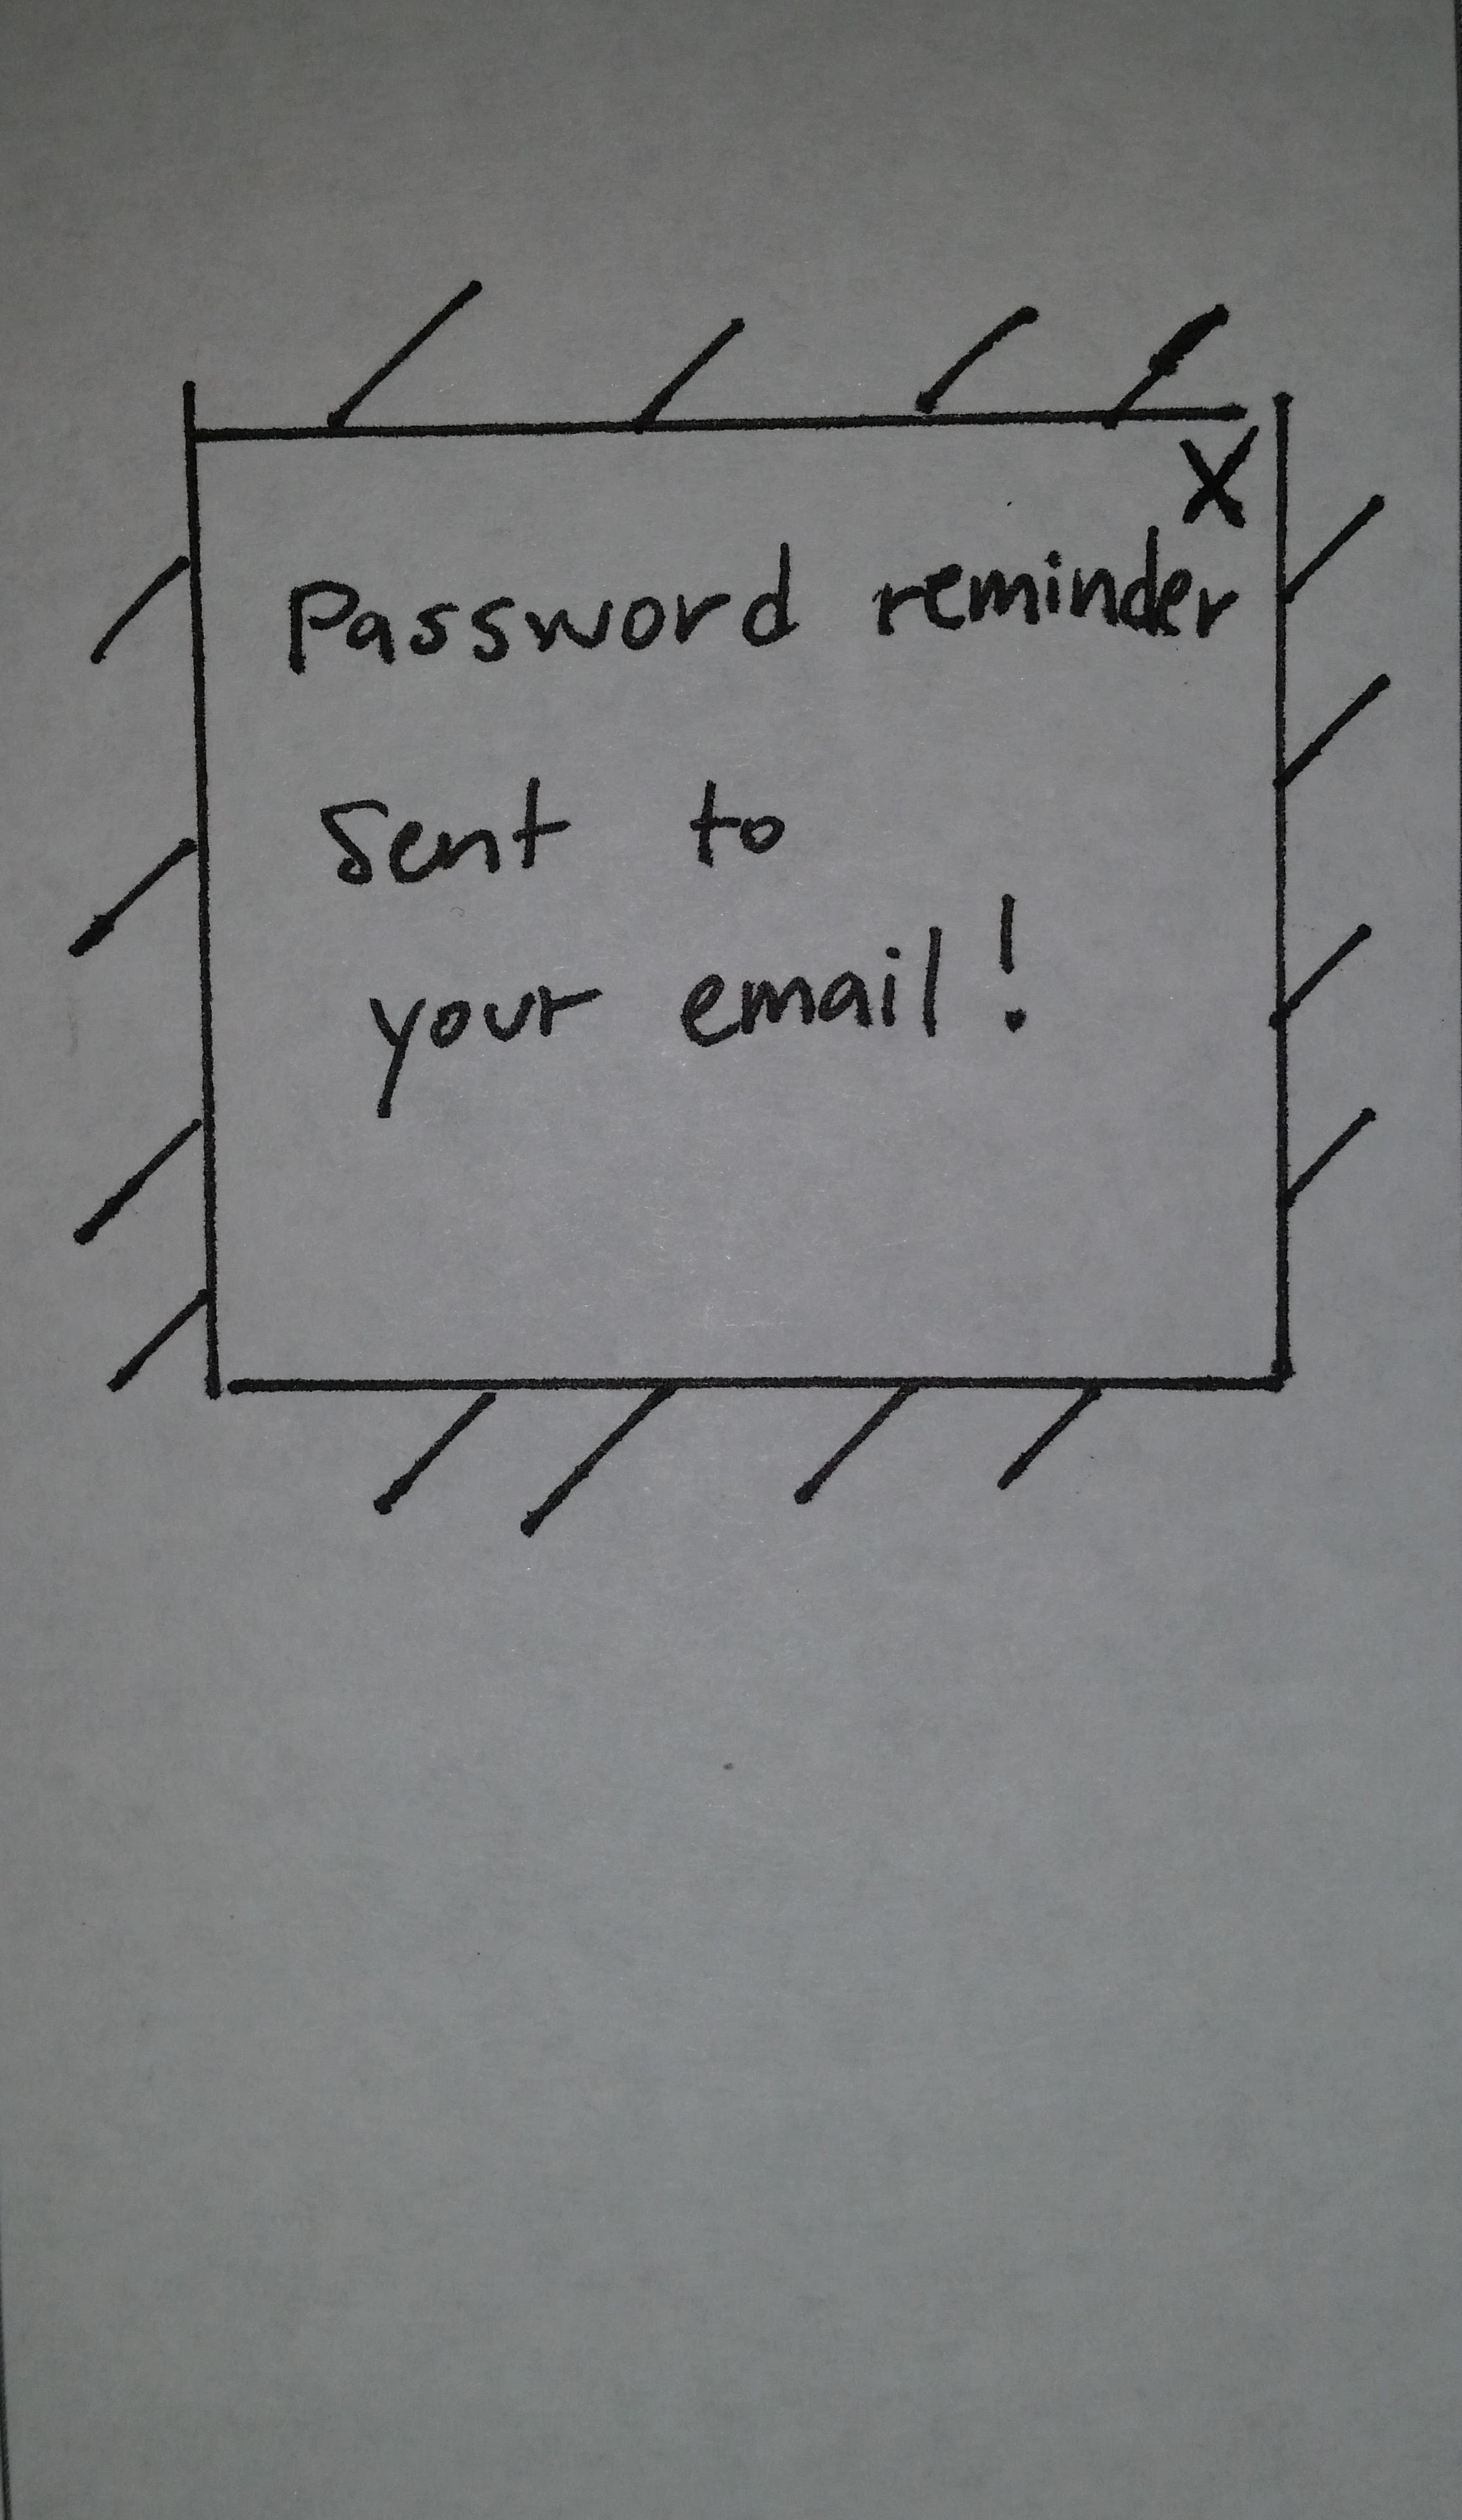 X
Password reminder
Sent to
your email!